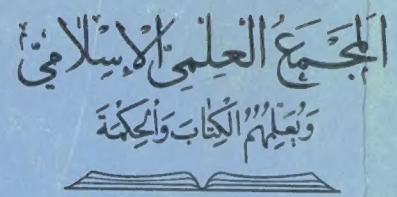 المَجْمَعُ العِلْمِيُّ الإِسْلَامِيُّ
وَيُعَلِّمُهُمُ الْكِتَابَ وَالْحِكْمَةَ